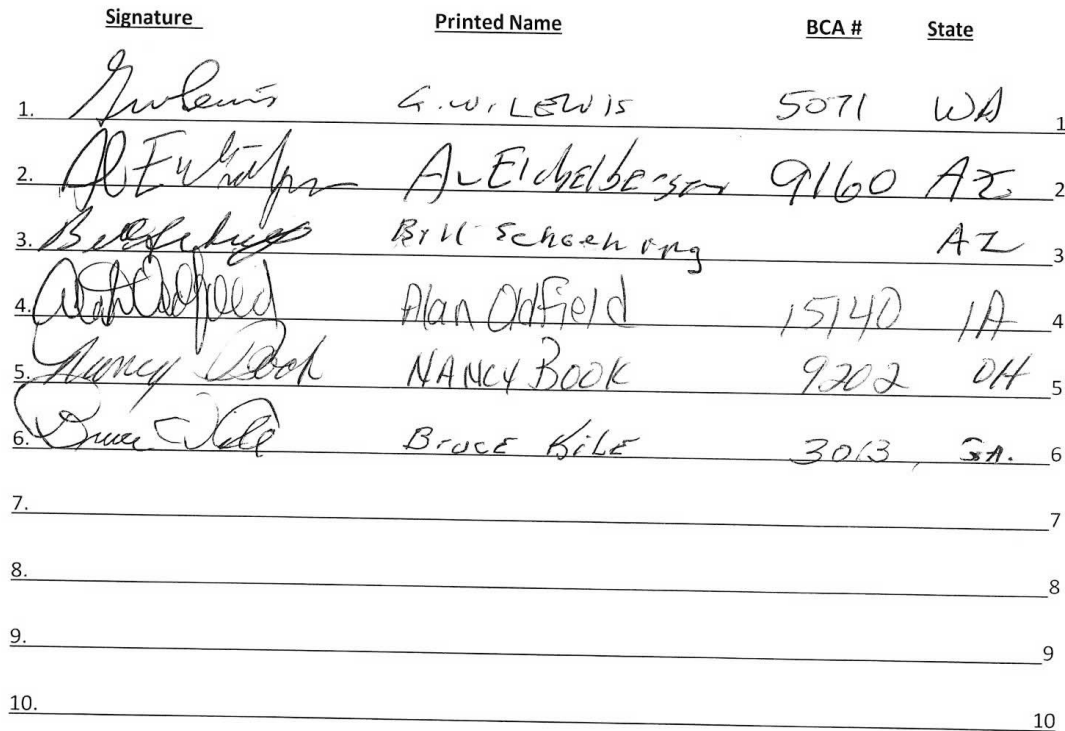 Signature Printed Name BCA # State
1. GW Lewis G.W. LEWIS 5071 WA 1
2. AL Eichelberger 9160 AZ 2
3. Bill AZ 3
4. Alan Oldfield Alan Oldfield 15140 IA 4
5. Nancy Book NANCY BOOK 9202 OH 5
6. Bruce Kile Bruce KiLE 3013 6
7. 7
8. 8
9. 9
10. 10